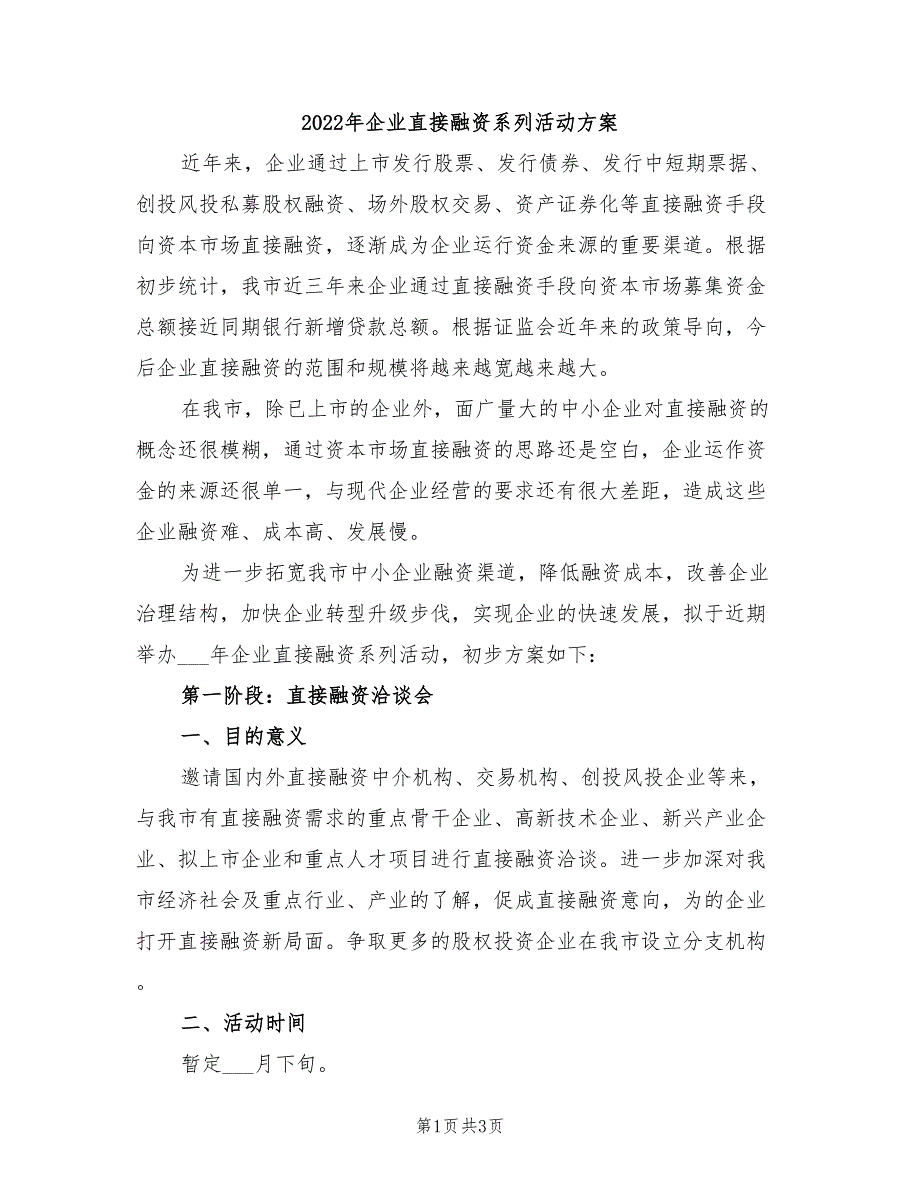 2022年企业直接融资系列活动方案
近年来，企业通过上市发行股票、发行债券、发行中短期票据、
创投风投私募股权融资、场外股权交易、资产证券化等直接融资手段
向资本市场直接融资，逐渐成为企业运行资金来源的重要渠道。根据
初步统计，我市近三年来企业通过直接融资手段向资本市场募集资金
总额接近同期银行新增贷款总额。根据证监会近年来的政策导向，今
后企业直接融资的范围和规模将越来越宽越来越大。
在我市，除已上市的企业外，面广量大的中小企业对直接融资的
概念还很模糊，通过资本市场直接融资的思路还是空白，企业运作资
金的来源还很单一，与现代企业经营的要求还有很大差距，造成这些
企业融资难、成本高、发展慢。
为进一步拓宽我市中小企业融资渠道，降低融资成本，改善企业
治理结构，加快企业转型升级步伐，实现企业的快速发展，拟于近期
举办___年企业直接融资系列活动，初步方案如下：
第一阶段：直接融资洽谈会
一、目的意义
邀请国内外直接融资中介机构、交易机构、创投风投企业等来，
与我市有直接融资需求的重点骨干企业、高新技术企业、新兴产业企
业、拟上市企业和重点人才项目进行直接融资洽谈。进一步加深对我
市经济社会及重点行业、产业的了解，促成直接融资意向，为的企业
打开直接融资新局面。争取更多的股权投资企业在我市设立分支机构
。
二、活动时间
暂定___月下旬。
第1页共3页